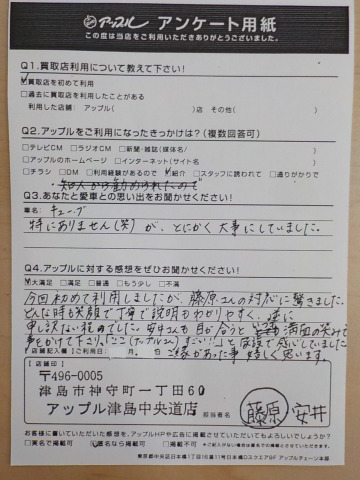 アップル アンケート用紙
この度は当店をご利用いただきありがとうございました。
Q1.買取店利用について教えて下さい!
☑買取店を初めて利用
□過去に買取店を利用したことがある
利用した店舗:アップル( )店 その他( )
Q2.アップルをご利用になったきっかけは?(複数回答可)
□テレビCM □ラジオCM □新聞・雑誌(媒体名/ )
□アップルのホームページ □インターネット(サイト名 )
□チラシ □DM □利用経験があるので ☑紹介 □スタッフに誘われて □通りがかりで
知人から勧められたので
Q3.あなたと愛車との思い出をお聞かせください!
車名:キューブ
特にありません(笑)が、とにかく大事にしていました。
Q4.アップルに対する感想をぜひお聞かせください!
☑大満足 □満足 □普通 □もう少し □不満
今回初めて利用しましたが、藤原さんの対応に驚きました。
どんな時も笑顔で丁寧で説明も分かりやすく、逆に
申し訳ない程のでした。安井さんも目が合うと 満面の笑みで
声をかけて下さり。「ここ(アップルさん)すごい!!」と店設で感じていました
店舗記入欄【ご利用日: 月 日】 ご縁があった事嬉しく思います。
【店舗印】
〒496-0005
津島市神守町一丁田60
アップル津島中央道店
担当者名 藤原 安井
お客様に書いていただいた感想を、アップルHPや広告に掲載させていただいてもよろしいでしょうか?
□実名で掲載可 ☑匿名なら掲載可 □掲載不可
東京都中央区日本橋1丁目16番11号日本橋Dスクエア8F アップルチェーン本部